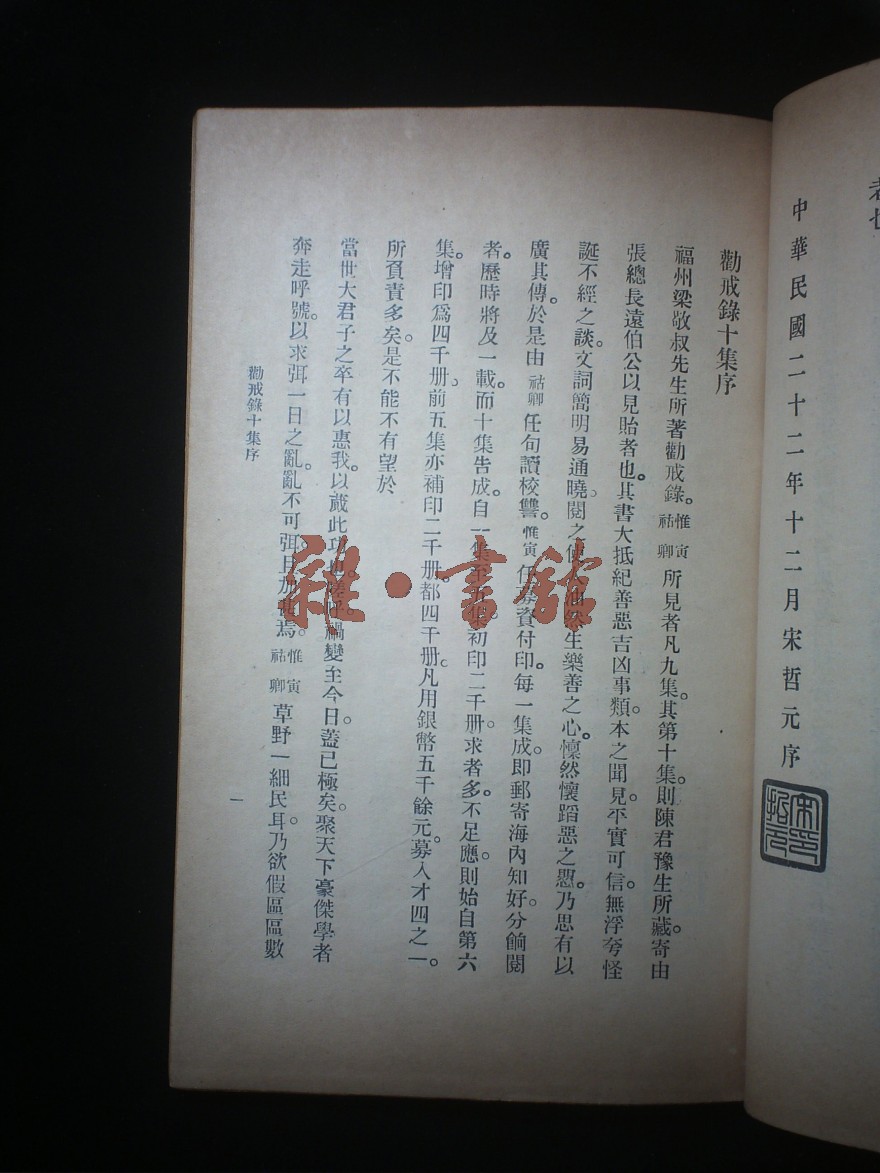 者也
中華民國二十二年十二月宋哲元序
宋哲元印
勸戒錄十集序
福州梁敬叔先生所著勸戒錄。惟寅祜卿所見者凡九集。其第十集。則陳君豫生所藏。寄由
張總長遠伯公以見貽者也。其書大抵紀善惡吉凶事類。本之聞見。平實可信。無浮夸怪
誕不經之談。文詞簡明易通曉。閱之使人油然生樂善之心。懍然懷蹈惡之愳。乃思有以
廣其傳。於是由祜卿任句讀校讐。惟寅任募資付印。每一集成。即郵寄海內知好。分餉閱
者。歷時將及一載。而十集告成。自一集至五集。初印二千册。求者多。不足應。則始自第六
集。增印爲四千册。前五集亦補印二千册。都四千册。凡用銀幣五千餘元。募入才四之一。
所負責多矣。是不能不有望於
當世大君子之卒有以惠我。以蕆此功也。嗟呼。禍變至今日。蓋已極矣。聚天下豪傑學者
奔走呼號。以求弭一日之亂。亂不可弭。且加甚焉。惟寅祜卿草野一細民耳。乃欲假區區數
勸戒錄十集序
一
雜·書館